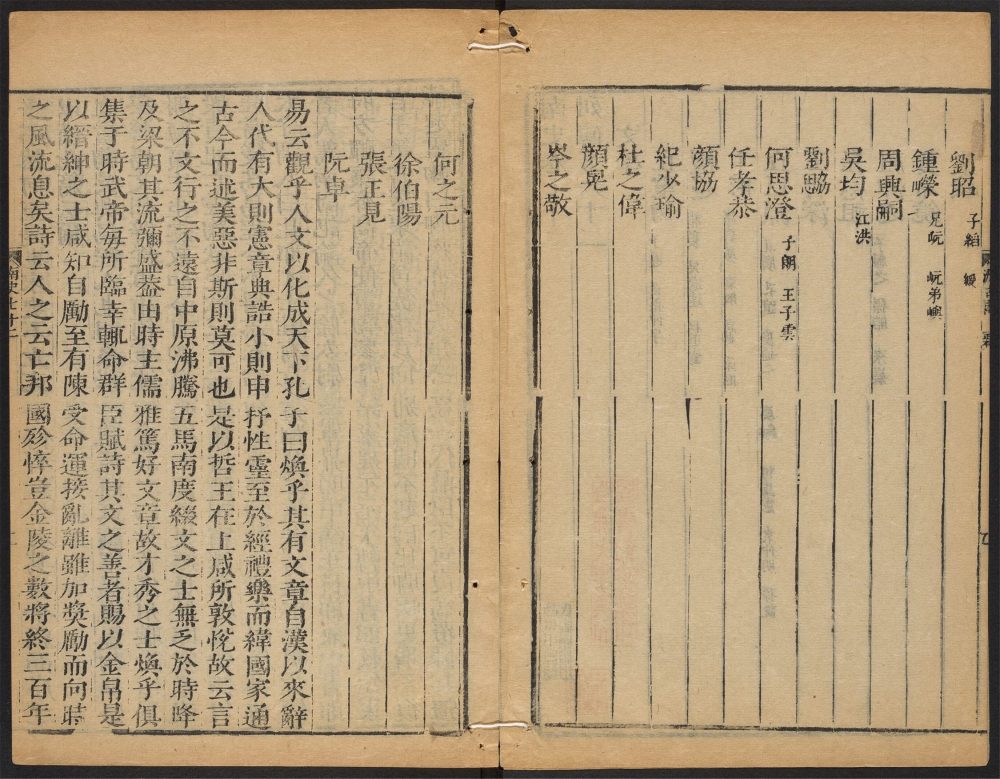 劉昭 子縚 緩
鍾嶸 兄岏 岏弟嶼
周興嗣
吳均 江洪
劉勰
何思澄 子朗 王子雲
任孝恭
顏協
紀少瑜
杜之偉
顏晃
岑之敬
何之元
徐伯陽
張正見
阮卓
易云觀乎人文以化成天下孔子曰煥乎其有文章自漢以來辭
人代有大則憲章典誥小則申抒性靈至於經禮樂而緯國家通
古今而述美惡非斯則莫可也是以哲王在上咸所敦悅故云言
之不文行之不遠自中原沸騰五馬南度綴文之士無乏於時降
及梁朝其流彌盛葢由時主儒雅篤好文章故才秀之士煥乎俱
集于時武帝每所臨幸輒命群臣賦詩其文之善者賜以金帛是
以縉紳之士咸知自勵至有陳受命運接亂離雖加奬勵而向時
之風流息矣詩云人之云亡邦國殄悴豈金陵之數將終三百年